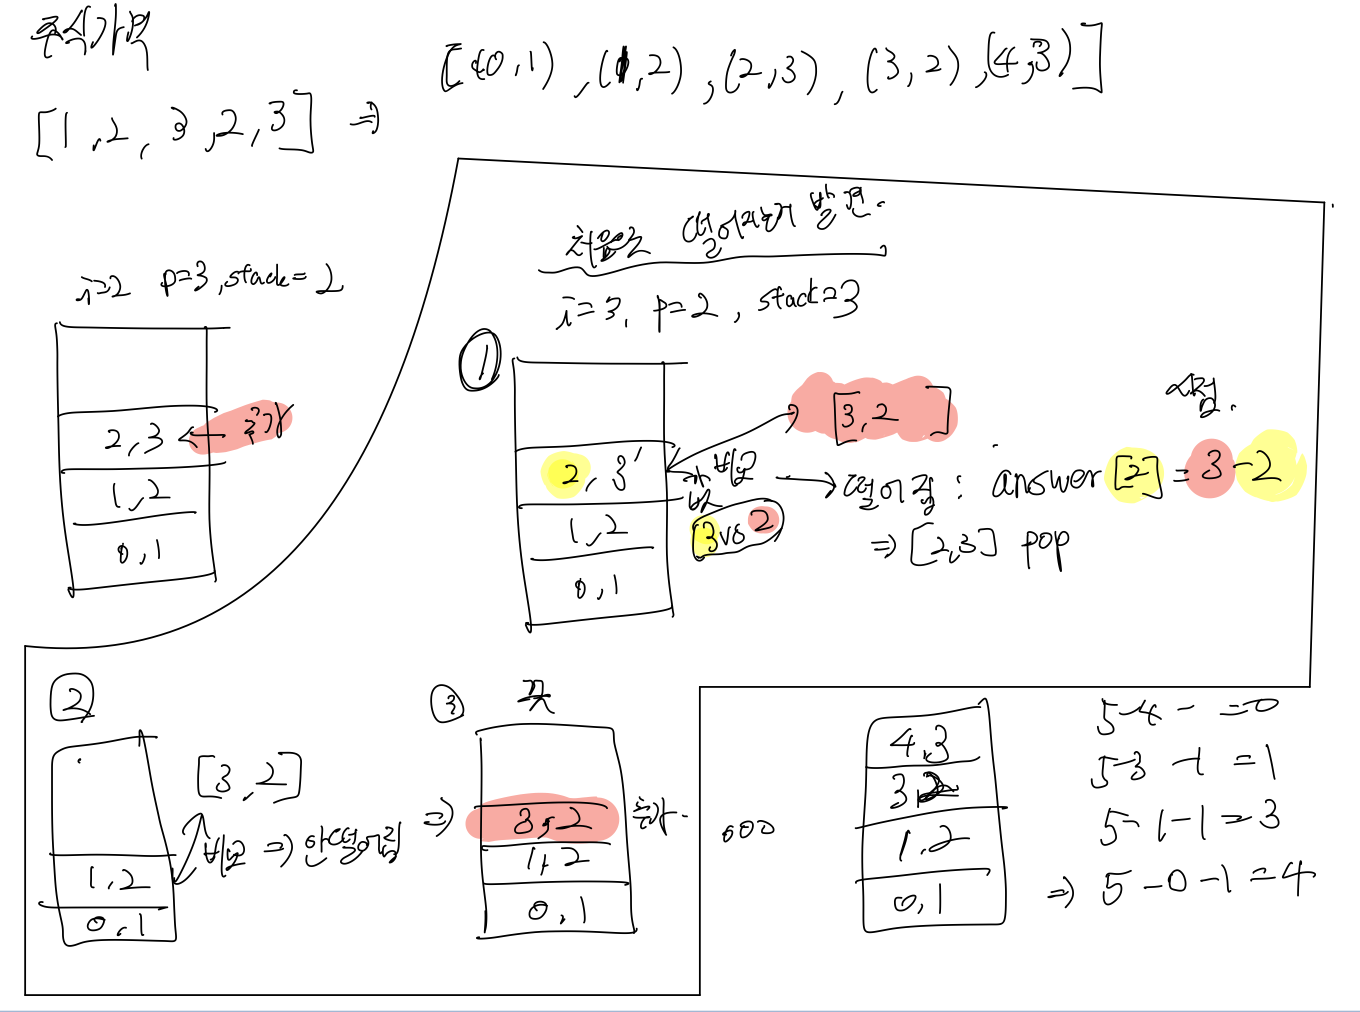 주식가격
[(0,1), (1,2), (2,3), (3,2), (4,3)]
[1, 2, 3, 2, 3] ⇒
처음으로 떨어지는거 발견.
i=2 p=3, stack=2
i=3, p=2, stack=3
①
2,3 ← 추가
1,2
0,1
[3,2]
시점.
2, 3
1,2
0,1
비교
값
3 vs 2
→ 떨어짐 : answer[2] = 3-2
⇒ [2,3] pop
②
[3,2]
비교 ⇒ 안떨어짐
1,2
0,1
③ 끝
⇒
3,2 추가.
1,2
0,1
ooo
4,3
3,2
1,2
0,1
5-4- =0
5-3-1=1
5-1-1=3
⇒ 5-0-1=4